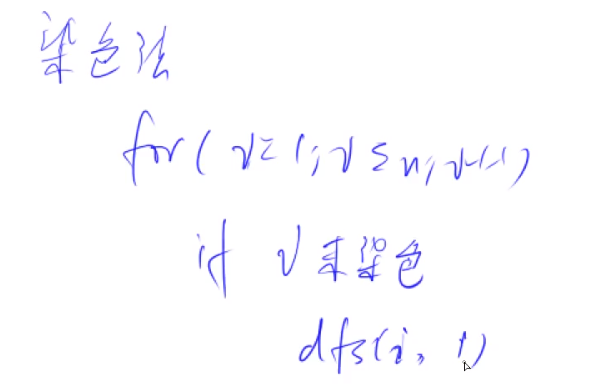 染色法
for(v=1;v≤n;v++)
if v未染色
dfs(i,1)